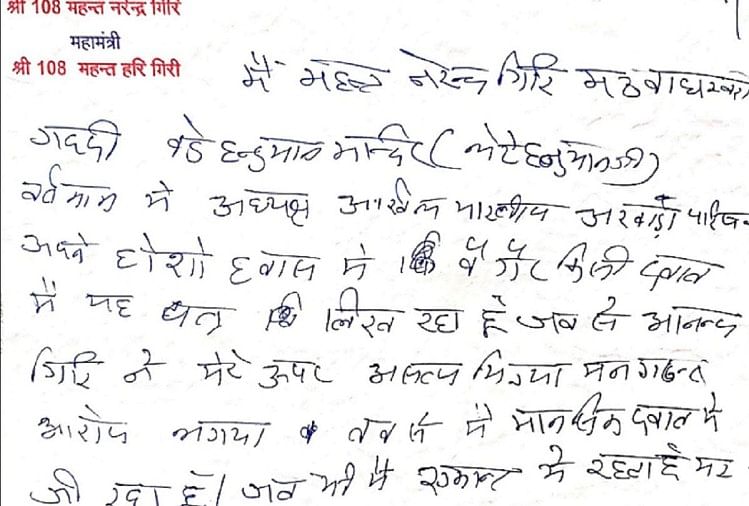 श्री 108 महन्त नरेन्द्र गिरि
महामंत्री
श्री 108 महन्त हरि गिरी
मैं महन्त नरेन्द्र गिरि मठ बाघम्बरी
गद्दी बडे हनुमान मन्दिर (लेटे हनुमानजी)
वर्तमान मे अध्यक्ष अखिल भारतीय अखाड़ा परिषद
अपने होशो हवास मे बगैर किसी दबाव
मै यह पत्र लिख रहा हूँ जब से आनन्द
गिरि ने मेरे ऊपर असत्य मिथ्या मनगढन्त
आरोप लगाया तब से मै मानसिक दबाव मे
जी रहा हूँ। जब भी मै एकान्त मे रहता हूँ मर